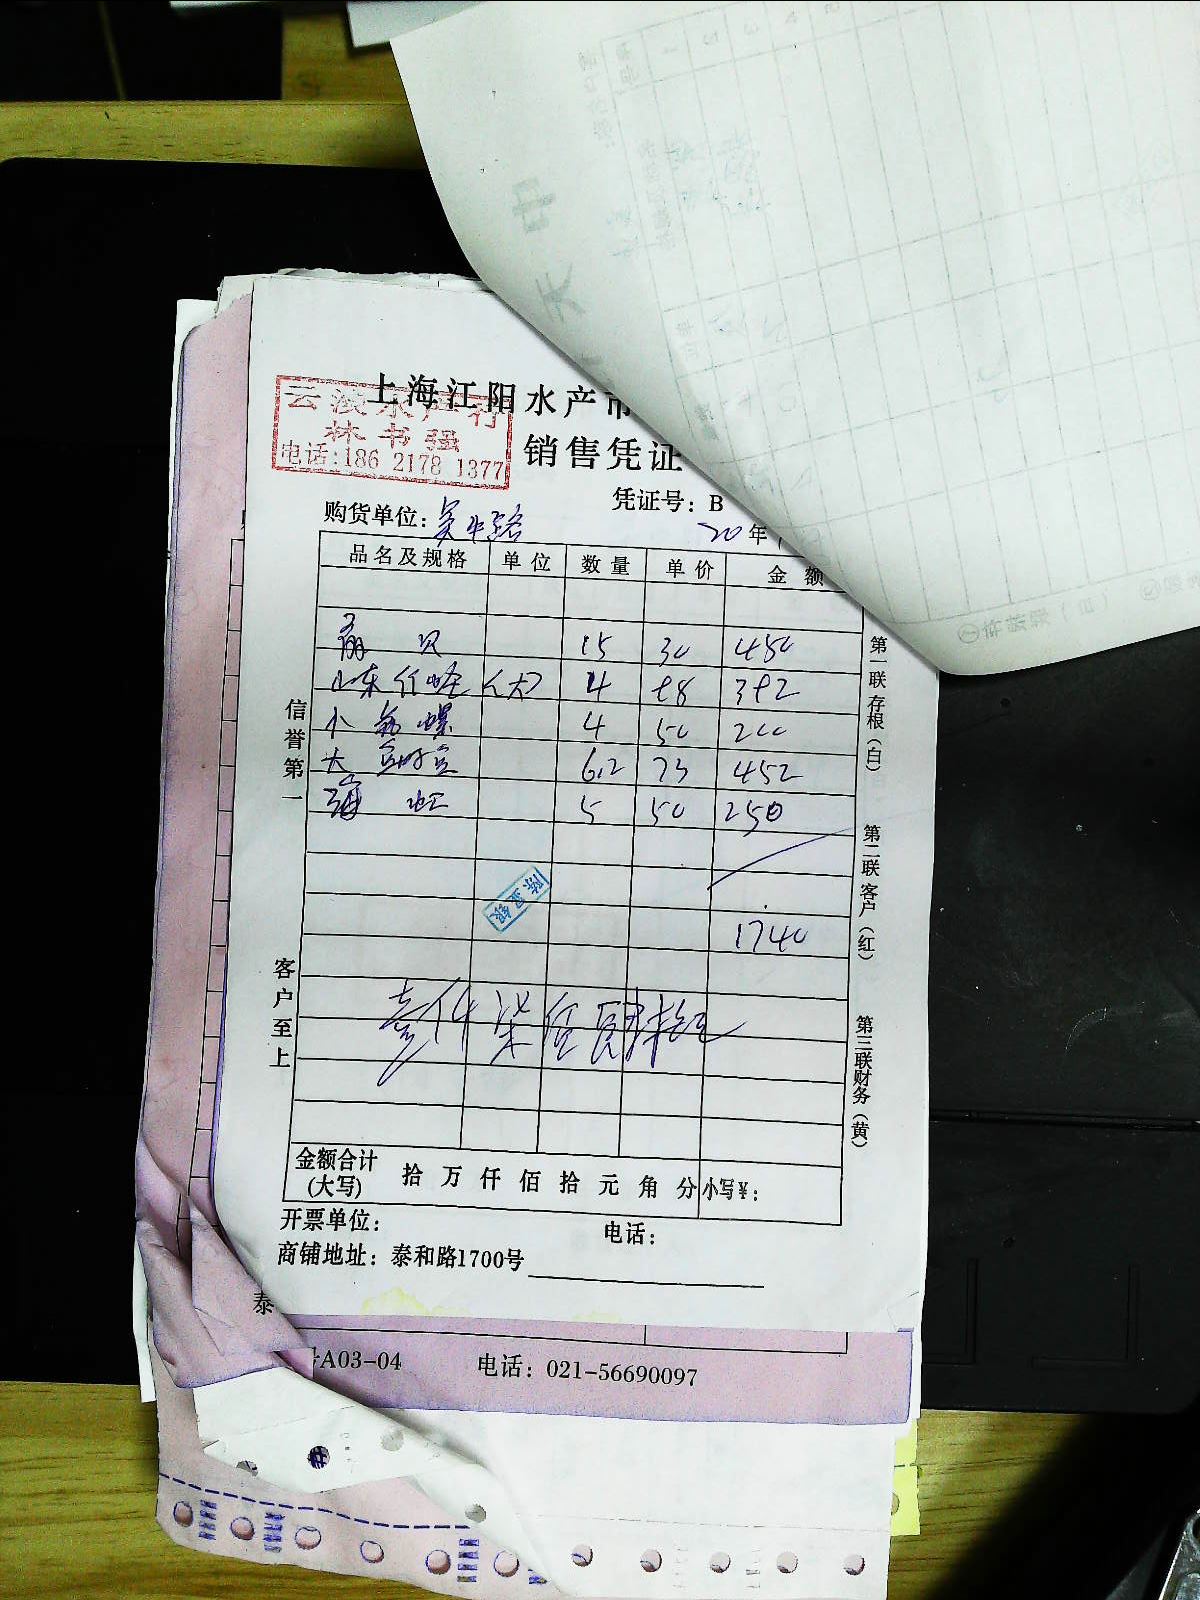 上海江阳水产市
云波水产行
林书强
电话:186 2178 1377
销售凭证
凭证号: B
购货单位: 吴中路
20 年
品名及规格 单位 数量 单价 金额
贝 15 30 450
山东竹蛏(大) 4 98 392
小 螺 4 50 200
大 6.2 73 452
海虹 5 50 250
1740
壹仟柒佰 肆拾元
信誉第一
客户至上
第一联存根(白)
第二联客户(红)
第三联财务(黄)
金额合计
(大写) 拾 万 仟 佰 拾 元 角 分 小写¥:
开票单位: 电话:
商铺地址: 泰和路1700号
泰
号A03-04 电话: 021-56690097